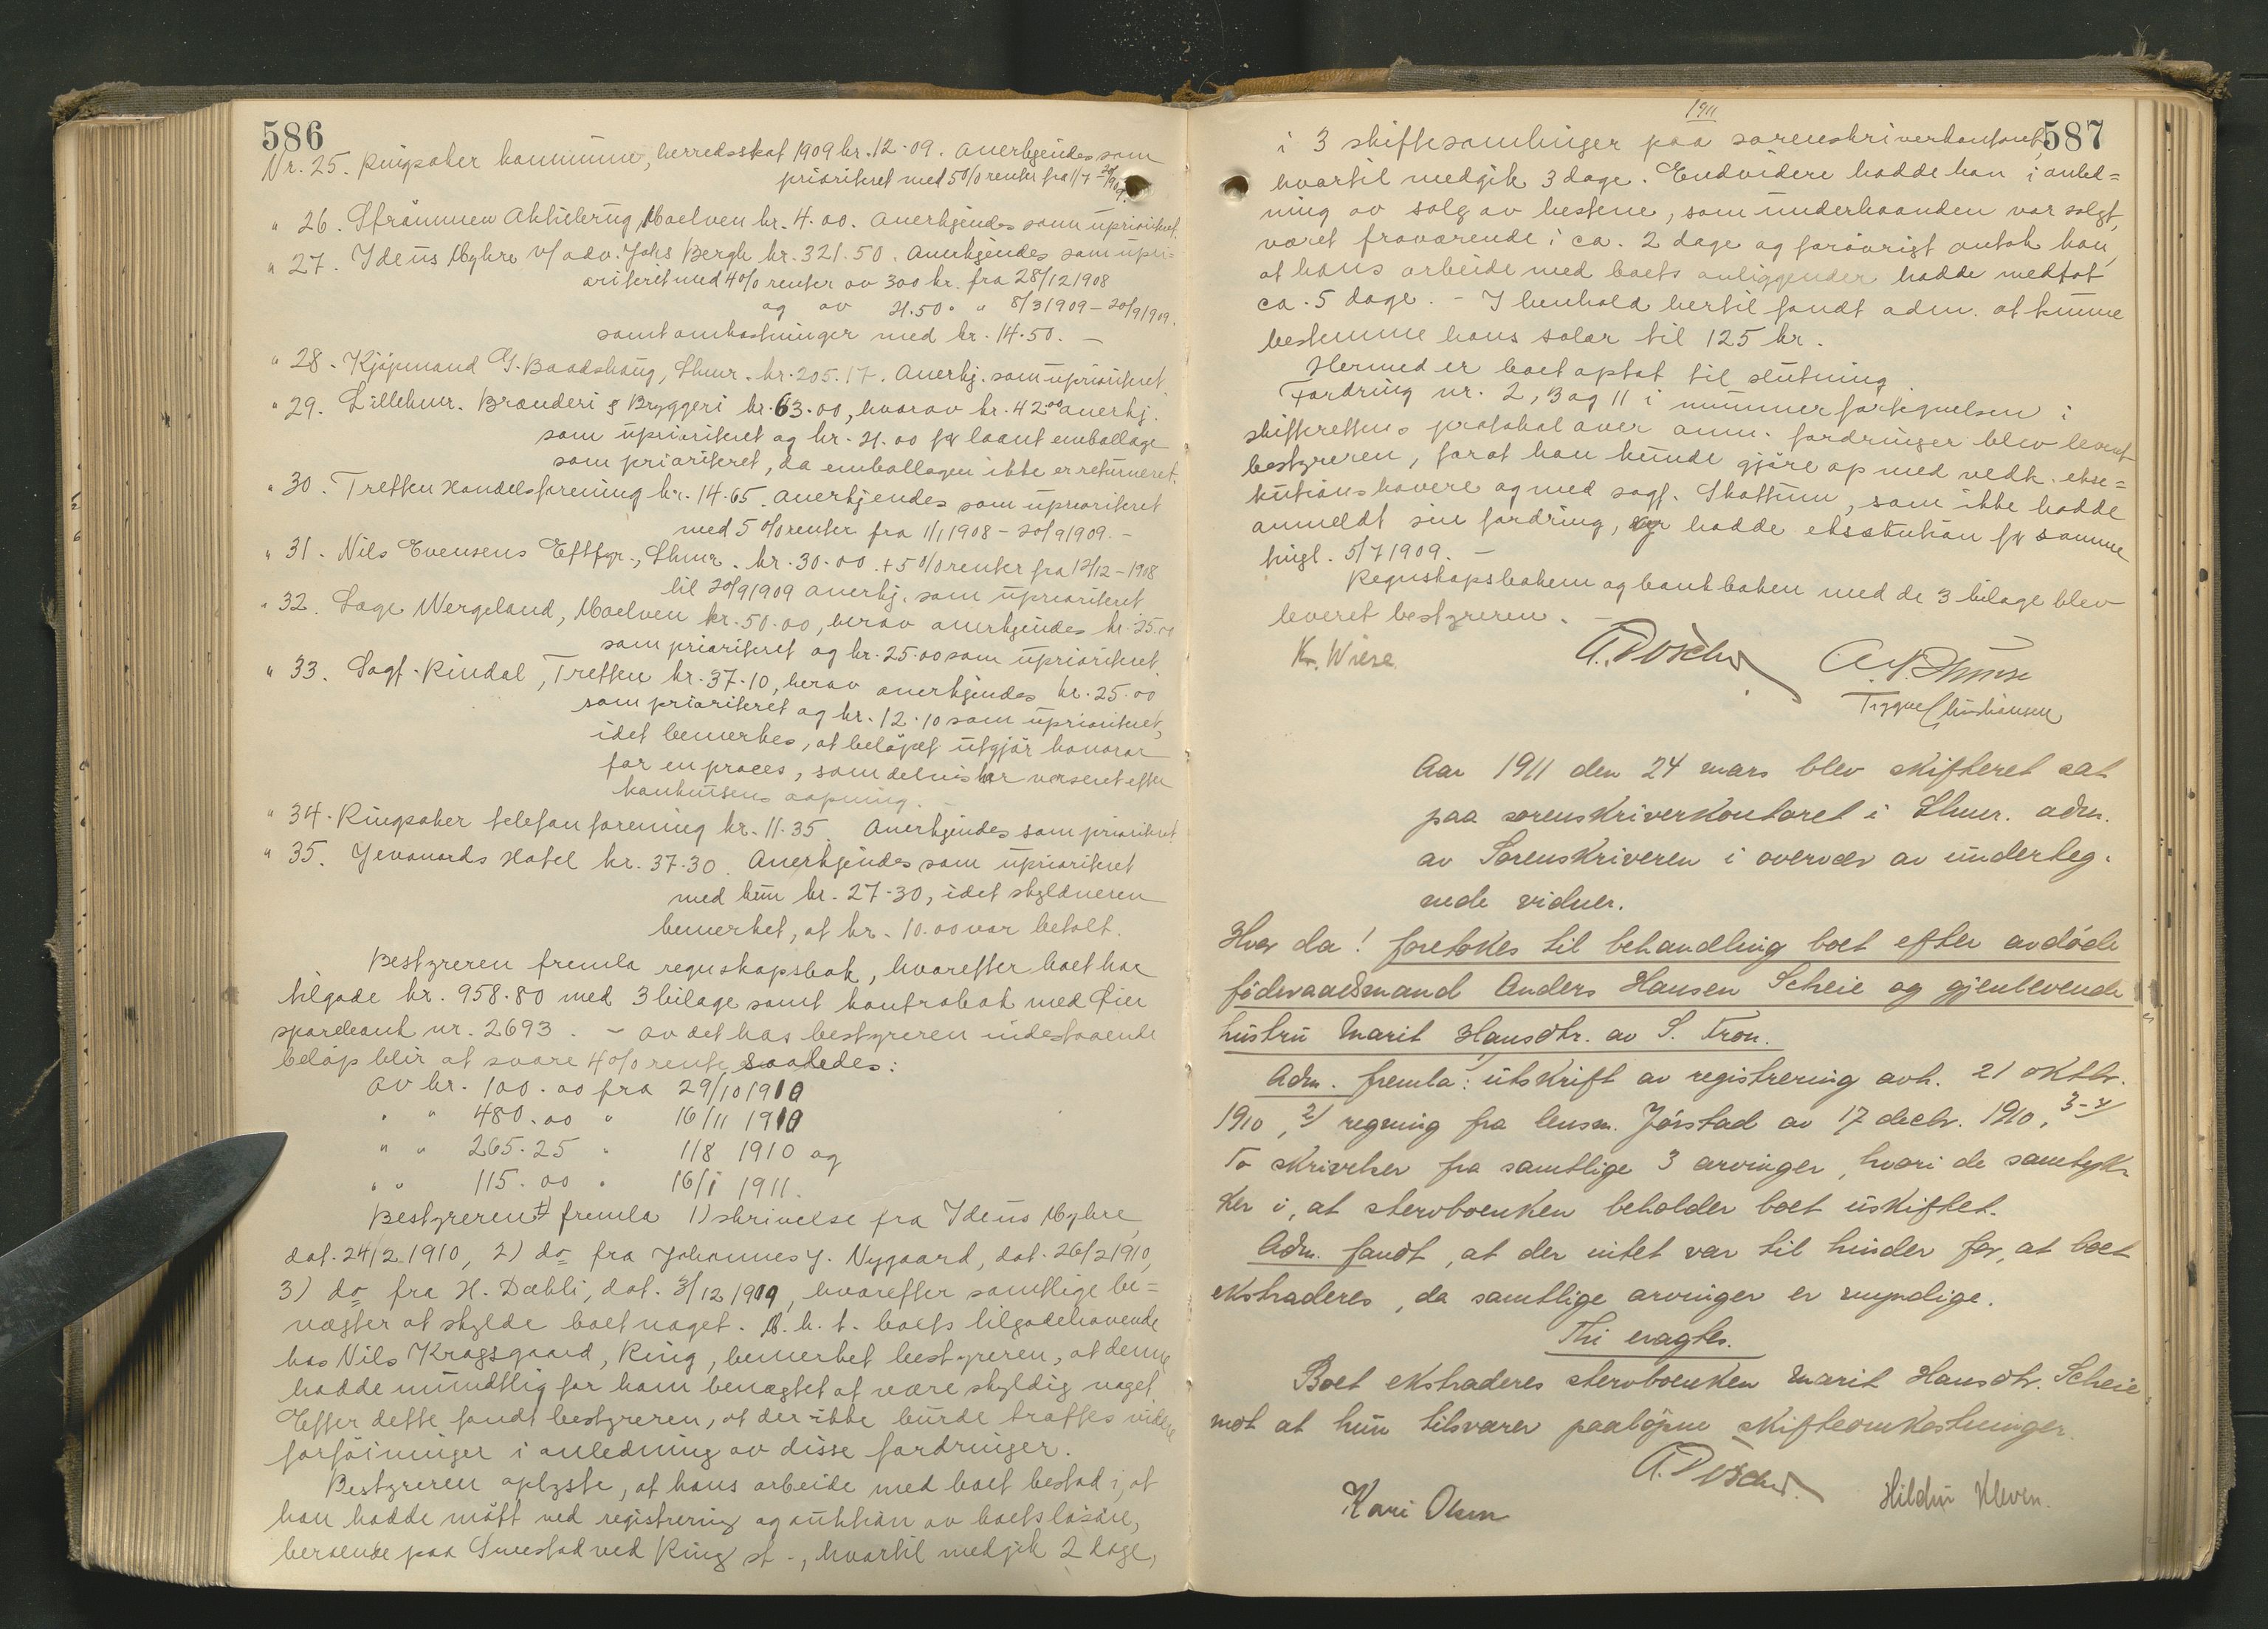 586
Nr. 25. Ringsaker kommune, herredsskat 1909 kr. 12.09. Anerkjendes som
prioriteret med 5 0/0 renter fra 1/7 - 20/9 1909.
" 26. Strömmen Aktiebrug, Moelven kr. 4.00. Anerkjendes som uprioritert.
" 27. Ideus Myhre v/ adv. Johs Bergh kr. 321.50. Anerkjendes som upri=
oriteret med 4 0/0 renter av 300 kr. fra 28/12 1908
og av 21.50 " " 8/3 1909 - 20/9 1909.
samt omkostninger med kr. 14.50. -
" 28. Kjöpmand G. Baadshaug, Lhmr. kr. 205.17. Anerkj. som uprioriteret
" 29. Lillehmr. Brænderi & Bryggeri kr. 63.00, hvorav kr. 42.00 anerkj.
som uprioriteret og kr. 21.00 for laant emballage
som prioriteret, da emballagen ikke er returneret.
" 30. Tretten Handelsforening kr. 14.65. Anerkjendes som uprioriteret
med 5 0/0 renter fra 1/1 1908 - 20/9 1909. -
" 31. Nils Evensens Eftfgr., Lhmr. kr. 30.00 + 5 0/0 renter fra 12/12 - 1908
til 20/9 1909 anerkj. som uprioriteret
" 32. Læge Wergeland, Moelven kr. 50.00, herav anerkjendes kr. 25.00
som prioriteret og kr. 25.00 som uprioriteret
" 33. Sagf. Rindal, Tretten kr. 37.10, herav anerkjendes kr. 25.00
som prioriteret og kr. 12.10 som uprioriteret,
idet bemerkes, at belöpet utgjör honorar
for en proces, som delvis har verseret efter
konkursens aapning.
" 34. Ringsaker telefonforening kr. 11.35. Anerkjendes som prioriteret
" 35. Jevanords Hotel kr. 37.30. Anerkjendes som uprioriteret
med kun kr. 27.30, idet skyldneren
bemerket, at kr. 10.00 var betalt.
Bestyreren fremla regnskapsbok, hvorefter boet har
tilgode kr. 958.80 med 3 bilage samt kontrabok med Öier
sparebank nr. 2693. - Av det hos bestyreren indestaaende
belöp blir at svare 4 0/0 rente saaledes:
Av kr. 100.00 fra 29/10 1910
" " 480.00 " 16/11 1910
" " 265.25 " 1/8 1910 og
" " 115.00 " 16/1 1911.
Bestyreren fremla 1) skrivelse fra Ideus Myhre,
dat. 24/2 1910, 2) do fra Johannes J. Nygaard, dat. 26/2 1910,
3) do fra H. Dæhli, dat. 3/12 1909, hvorefter samtlige be=
nægter at skylde boet noget. M. h. t. boets tilgodehavende
hos Nils Kragsgaard, Ring, bemerket bestyreren, at denne
hadde mundtlig for ham benægtet at være skyldig noget
Efter dette fandt bestyreren, at der ikke burde træffes videre
forföininger i anledning av disse fordringer.
Bestyreren oplyste, at hans arbeide med boet bestod i, at
han hadde mött ved registrering og auktion av boets lösöre,
beroende paa Smestad ved Ring st., hvortil medgik 2 dage,
1911
587
i 3 skiftesamlinger paa sorenskriverkontoret,
hvortil medgik 3 dage. Endvidere hadde han i anled=
ning av salg av hestene, som underhaanden var solgt,
været fraværende i ca. 2 dage og forövrigt antok han,
at hans arbeide med boets anliggender hadde medtat
ca. 5 dage. - I henhold hertil fandt adm. at kunne
bestemme hans salær til 125 kr.
Hermed er boet optat til slutning.
Fordring nr. 2, 3 og 11 i nummerfortegnelsen i
skifterettens protokol over anm. fordringer blev levert
bestyreren, forat han kunde gjöre op med vedk. ekse=
kutionshavere og med sagf. Skattum, som ikke hadde
anmeldt sin fordring, og hadde eksekution for samme
tingl. 5/7 1909. -
Regnskapsboken og bankboken med de 3 bilage blev
leveret bestyreren. -
K. Wiese
Aar 1911 den 24 mars blev skifteret sat
paa sorenskriverkontoret i Lhmr. adm.
av Sorenskriveren i overvær av underteg-
nede vidner.
Hvor da! foretokes til behandling boet efter avdöde
föderaadsmand Anders Hansen Scheie og gjenlevende
hustru Marit Hansdtr. av S. Fron.
Adm. fremla: 1/ utskrift av registrering avh. 21 oktbr.
1910, 2/ regning fra lensm. Jörstad av 17 decbr. 1910, 3-4/
to skrivelser fra samtlige 3 arvinger, hvori de samtyk-
ker i, at stervboenken beholder boet uskiftet.
Adm. fandt, at der intet var til hinder for, at boet
ekstraderes, da samtlige arvinger er myndige.
Thi eragtes.
Boet ekstraderes stervboenken Marit Hansdtr. Scheie
mot at hun tilsvarer paalöpne skifteomkostninger.
Kari Olsen
Hildur Kleven.